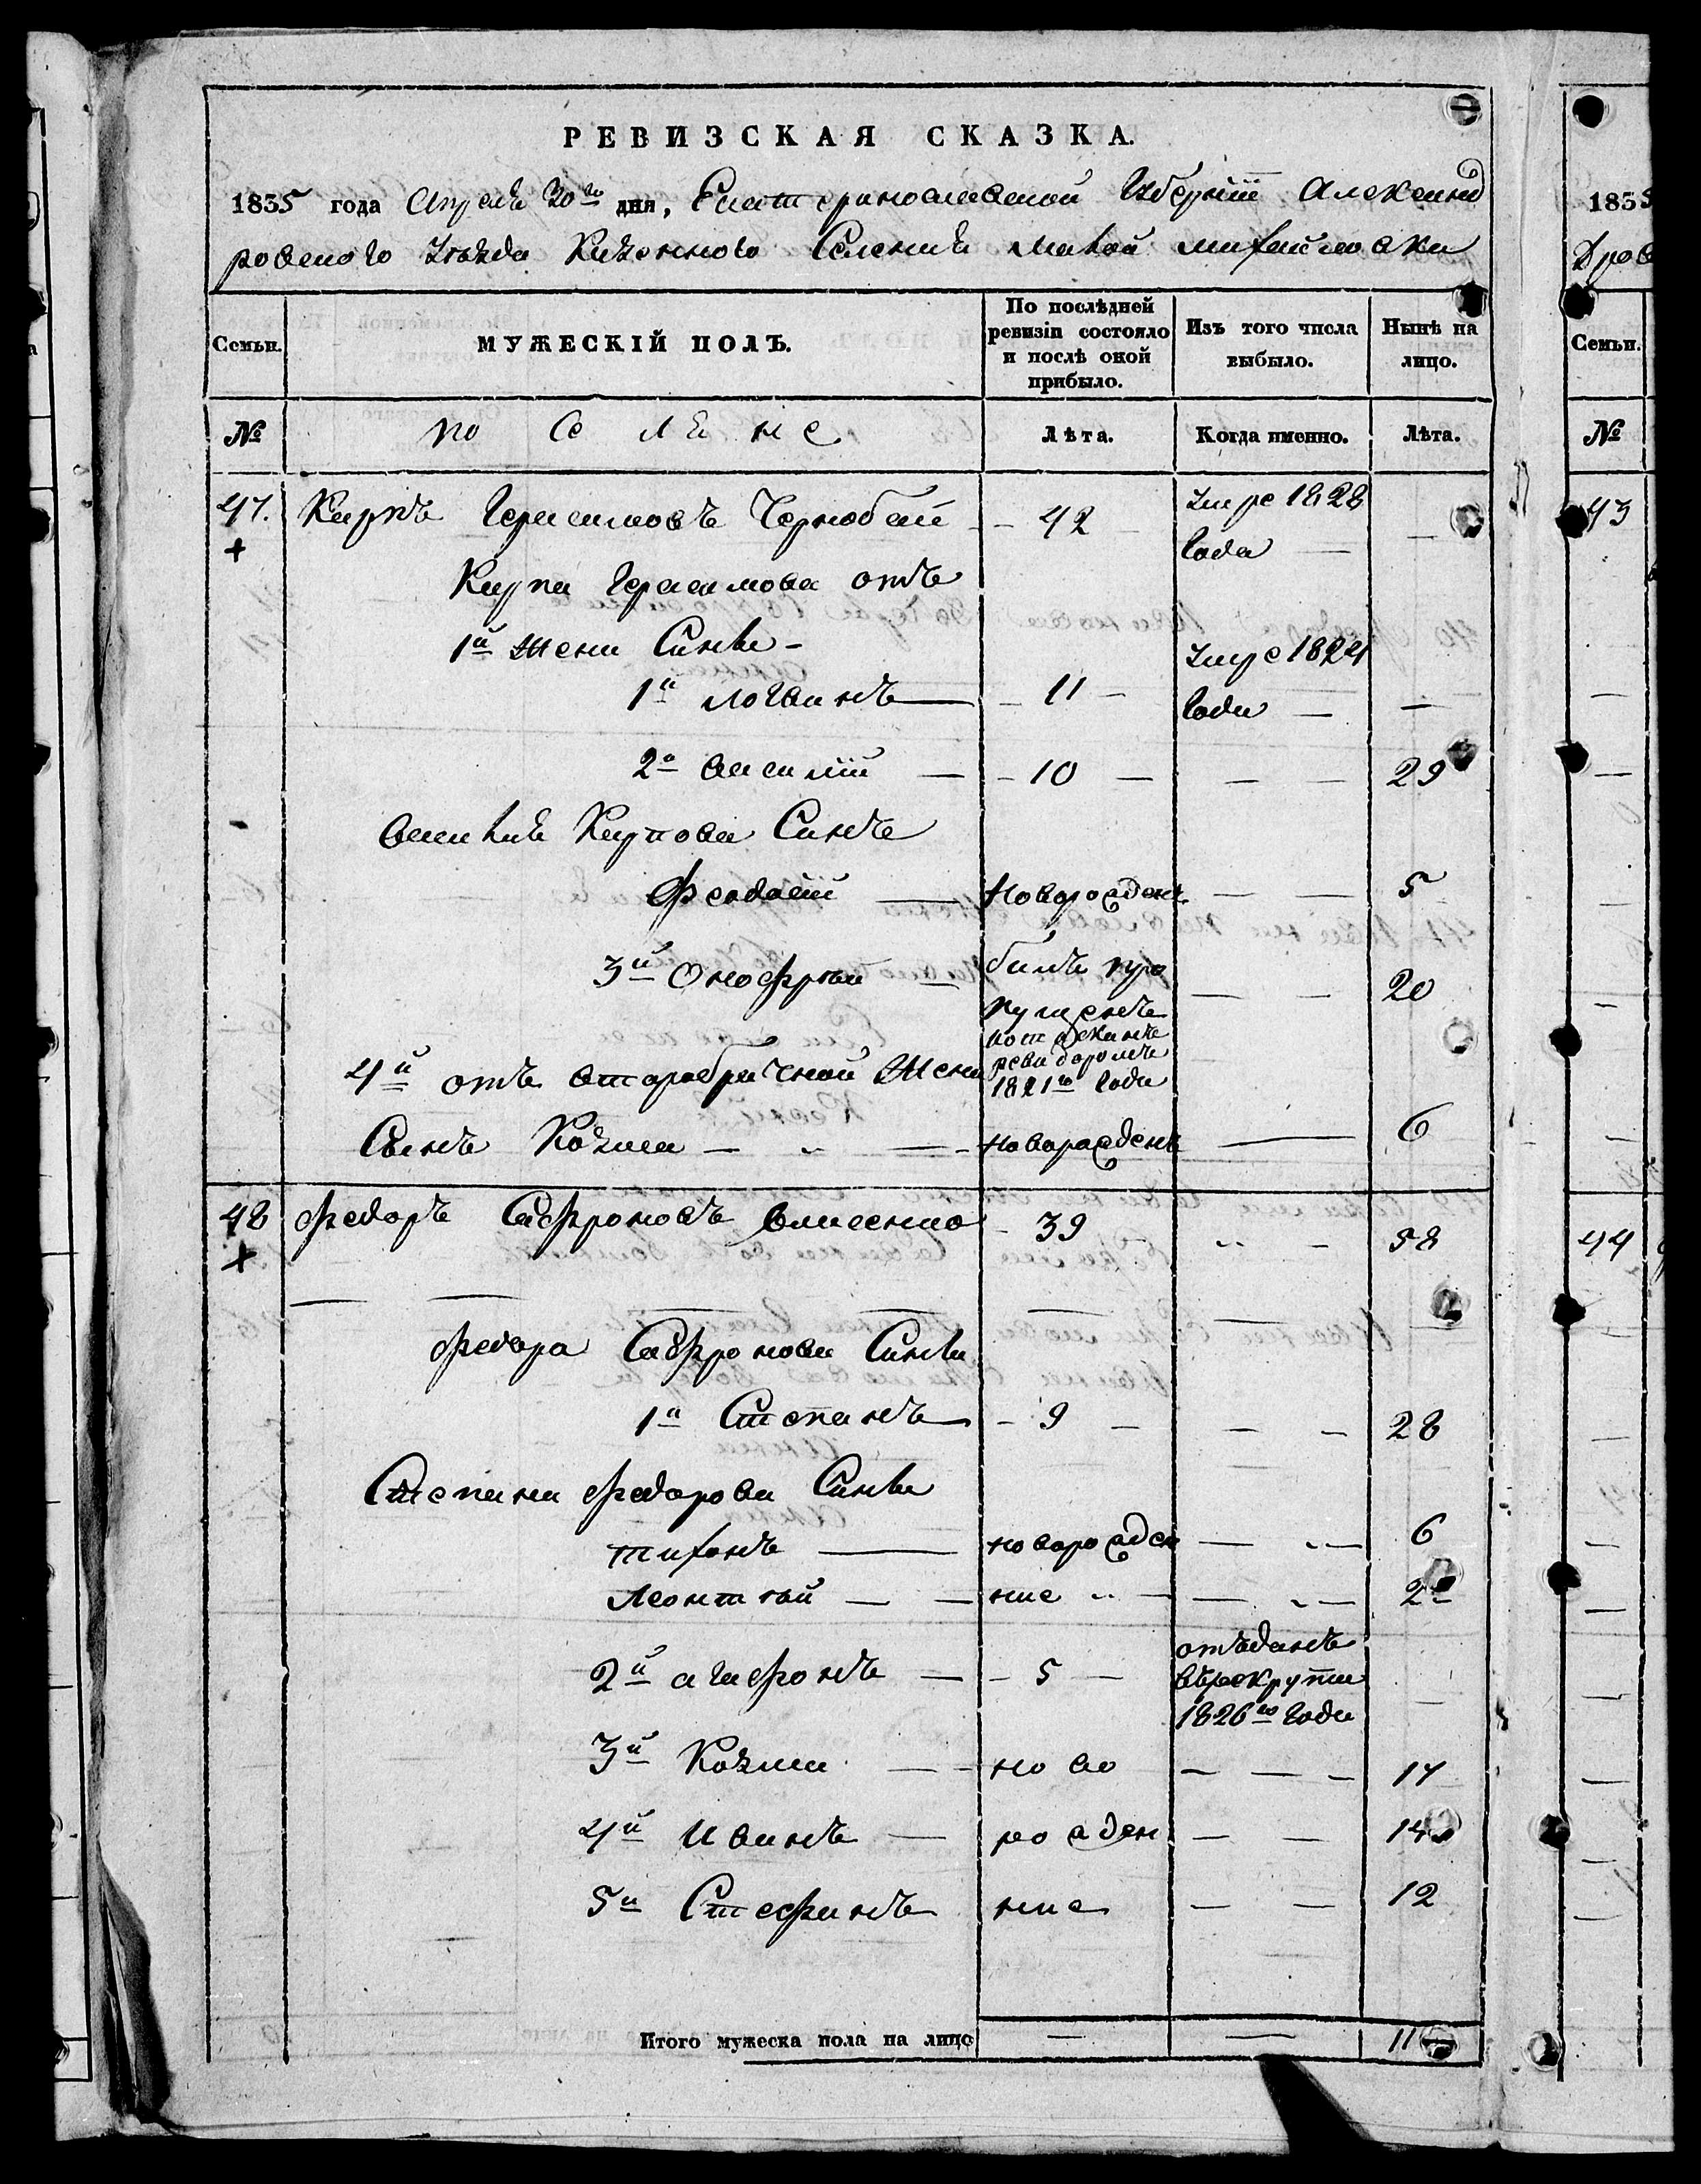 РЕВИЗСКАЯ СКАЗКА.
1835 года Апреля 30го дня, Екатеринославской Губернiи Александ
ровского Уѣзда Казенного Селенiя Малой михайловки
Семьи. МУЖЕСКІЙ ПОЛЪ. По послѣдней ревизіи состояло и послѣ оной прибыло. Изъ того числа выбыло. Нынѣ на лицо.
№ по се ля не Лѣта. Когда именно. Лѣта.
Карпъ Герасимовъ Чернобай 42 умре 1828 года
Карпа Герасимова отъ
1й жени Сини
1й логвинъ 11 умре 1824 года
2й василiй 10 29
василия Карпова Синъ
Феодосiй Новорожденъ 5
3й Онофрiй билъ пропущенъ 20
1821го года
4й отъ второбрачной жени
Синъ Козма новорожденъ 6
48 федоръ Сафроновъ 39 58
федора Сафронова Сини
1й Степанъ 9 28
Степана федорова Сини
тихонъ новорожден 6
Леонтiй ние 2
2й агафонъ 5 отъданъ въ рекруты 1826го года
3й Козма ново 17
4й Иванъ рожден 14
5й Стефанъ ние 12
Итого мужеска пола на лицо 11
1835
Дров
Семьи.
№
43
44